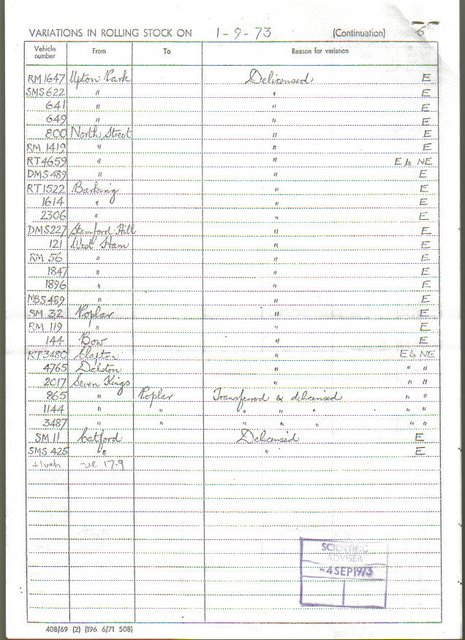 VARIATIONS IN ROLLING STOCK ON 1-9-73 (Continuation) 6
Vehicle number From To Reason for variation
RM 1647 Upton Park Delicensed E
SMS 622 " " E
641 " " E
649 " " E
800 North Street " E
RM 1419 " " E
RT 4659 " " E to NE
DMS 489 " " E
RT 1522 Barking " E
1614 " " E
2306 " " E
DMS 227 Stamford Hill " E
121 West Ham " E
RM 56 " " E
1847 " " E
1896 " " E
MBS 489 " " E
SM 32 Poplar " E
RM 119 " " E
144 Bow " E
RT 3480 Clapton " E to NE
4765 Dalston " " "
2017 Seven Kings " " "
865 " Poplar Transferred & delicensed " "
1144 " " " " " " "
3487 " " " " " " "
SM 11 Catford Delicensed E
SMS 425 " " E
+1 veh ve 17.9
SCIENTIFIC ADVISER
-4 SEP 1973
408/69 (2) (196 6/71 508)